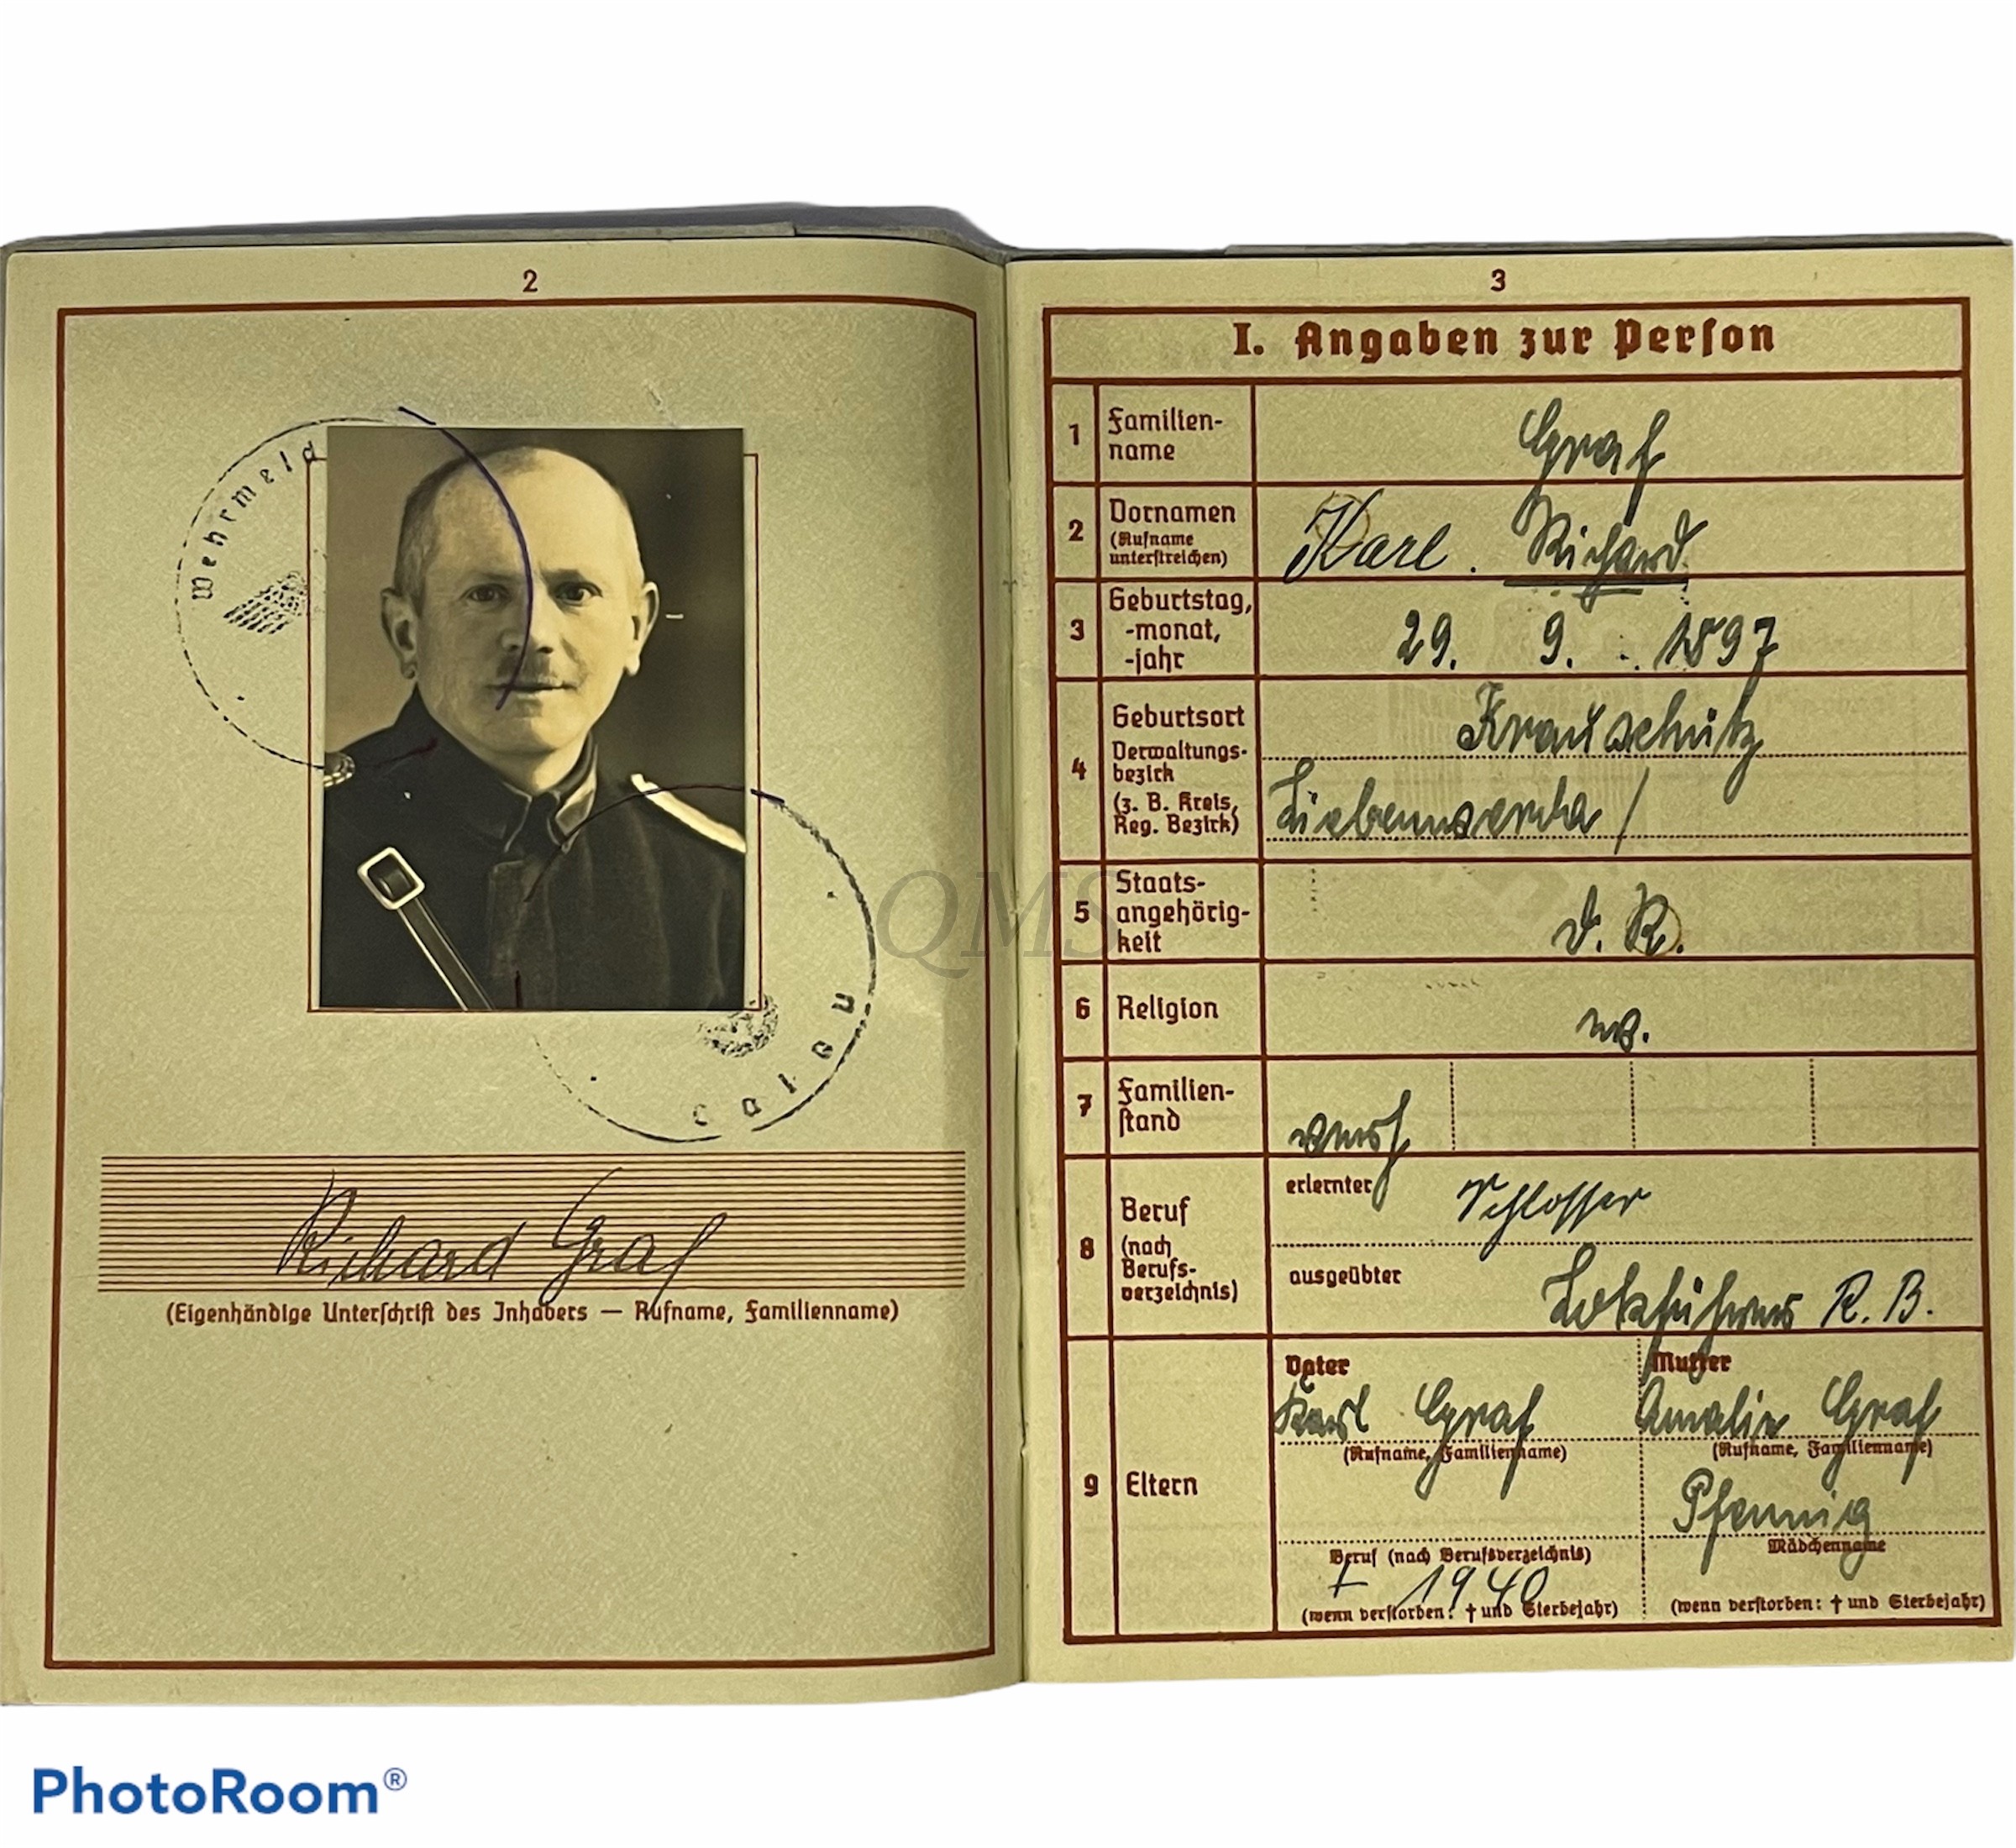 2
Wehrmeld
Calau
Richard Graf
(Eigenhändige Unterschrift des Inhabers — Rufname, Familienname)
3
I. Angaben zur Person
1 Familien-
name
Graf
2 Vornamen
(Rufname
unterstreichen)
Karl. Richard
3 Geburtstag,
-monat,
-jahr
29. 9. 1897
4 Geburtsort
Verwaltungs-
bezirk
(z. B. Kreis,
Reg. Bezirk)
Krauschütz
Liebenwerda /
5 Staats-
angehörig-
keit
d. R.
6 Religion
7 Familien-
stand
verh
8 Beruf
(nach
Berufs-
verzeichnis)
erlernter Schlosser
ausgeübter Lokführer R. B.
9 Eltern
Vater
Karl Graf
(Rufname, Familienname)
Beruf (nach Berufsverzeichnis)
† 1940
(wenn verstorben: † und Sterbejahr)
Mutter
Amalie Graf
(Rufname, Familienname)
Pfennig
Mädchenname
(wenn verstorben: † und Sterbejahr)
QMS
PhotoRoom®